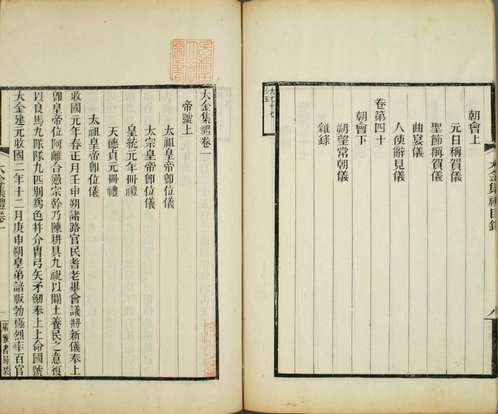 朝會上
元日稱賀儀
聖節稱賀儀
曲宴儀
人使辭見儀
卷第四十
朝會下
朔望常朝儀
雜錄
大金集禮目錄
大金集禮卷一
帝號上
太祖皇帝卽位儀
太宗皇帝卽位儀
皇統元年冊禮
天德貞元冊禮
太祖皇帝卽位儀
收國元年春正月壬申朔諸路官民耆老畢會議將新儀奉上
卽皇帝位阿離合懣宗幹乃陳耕具九祝以闢土養民之意復
以良馬九隊隊九匹別爲色并介胄弓矢矛劒奉上上命國號
大金建元收國二年十二月庚申朔皇弟諳版勃極烈率百官
大金集禮卷一